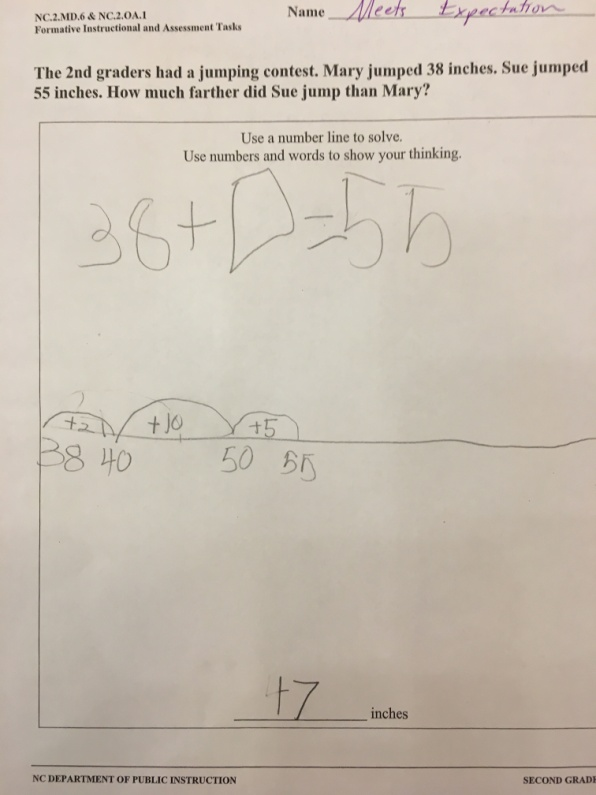 NC.2.MD.6 & NC.2.OA.1
Formative Instructional and Assessment Tasks
Name Meets Expectation
The 2nd graders had a jumping contest. Mary jumped 38 inches. Sue jumped
55 inches. How much farther did Sue jump than Mary?
Use a number line to solve.
Use numbers and words to show your thinking.
38+□=55
+2 +10 +5
38 40 50 55
17 inches
NC DEPARTMENT OF PUBLIC INSTRUCTION SECOND GRADE